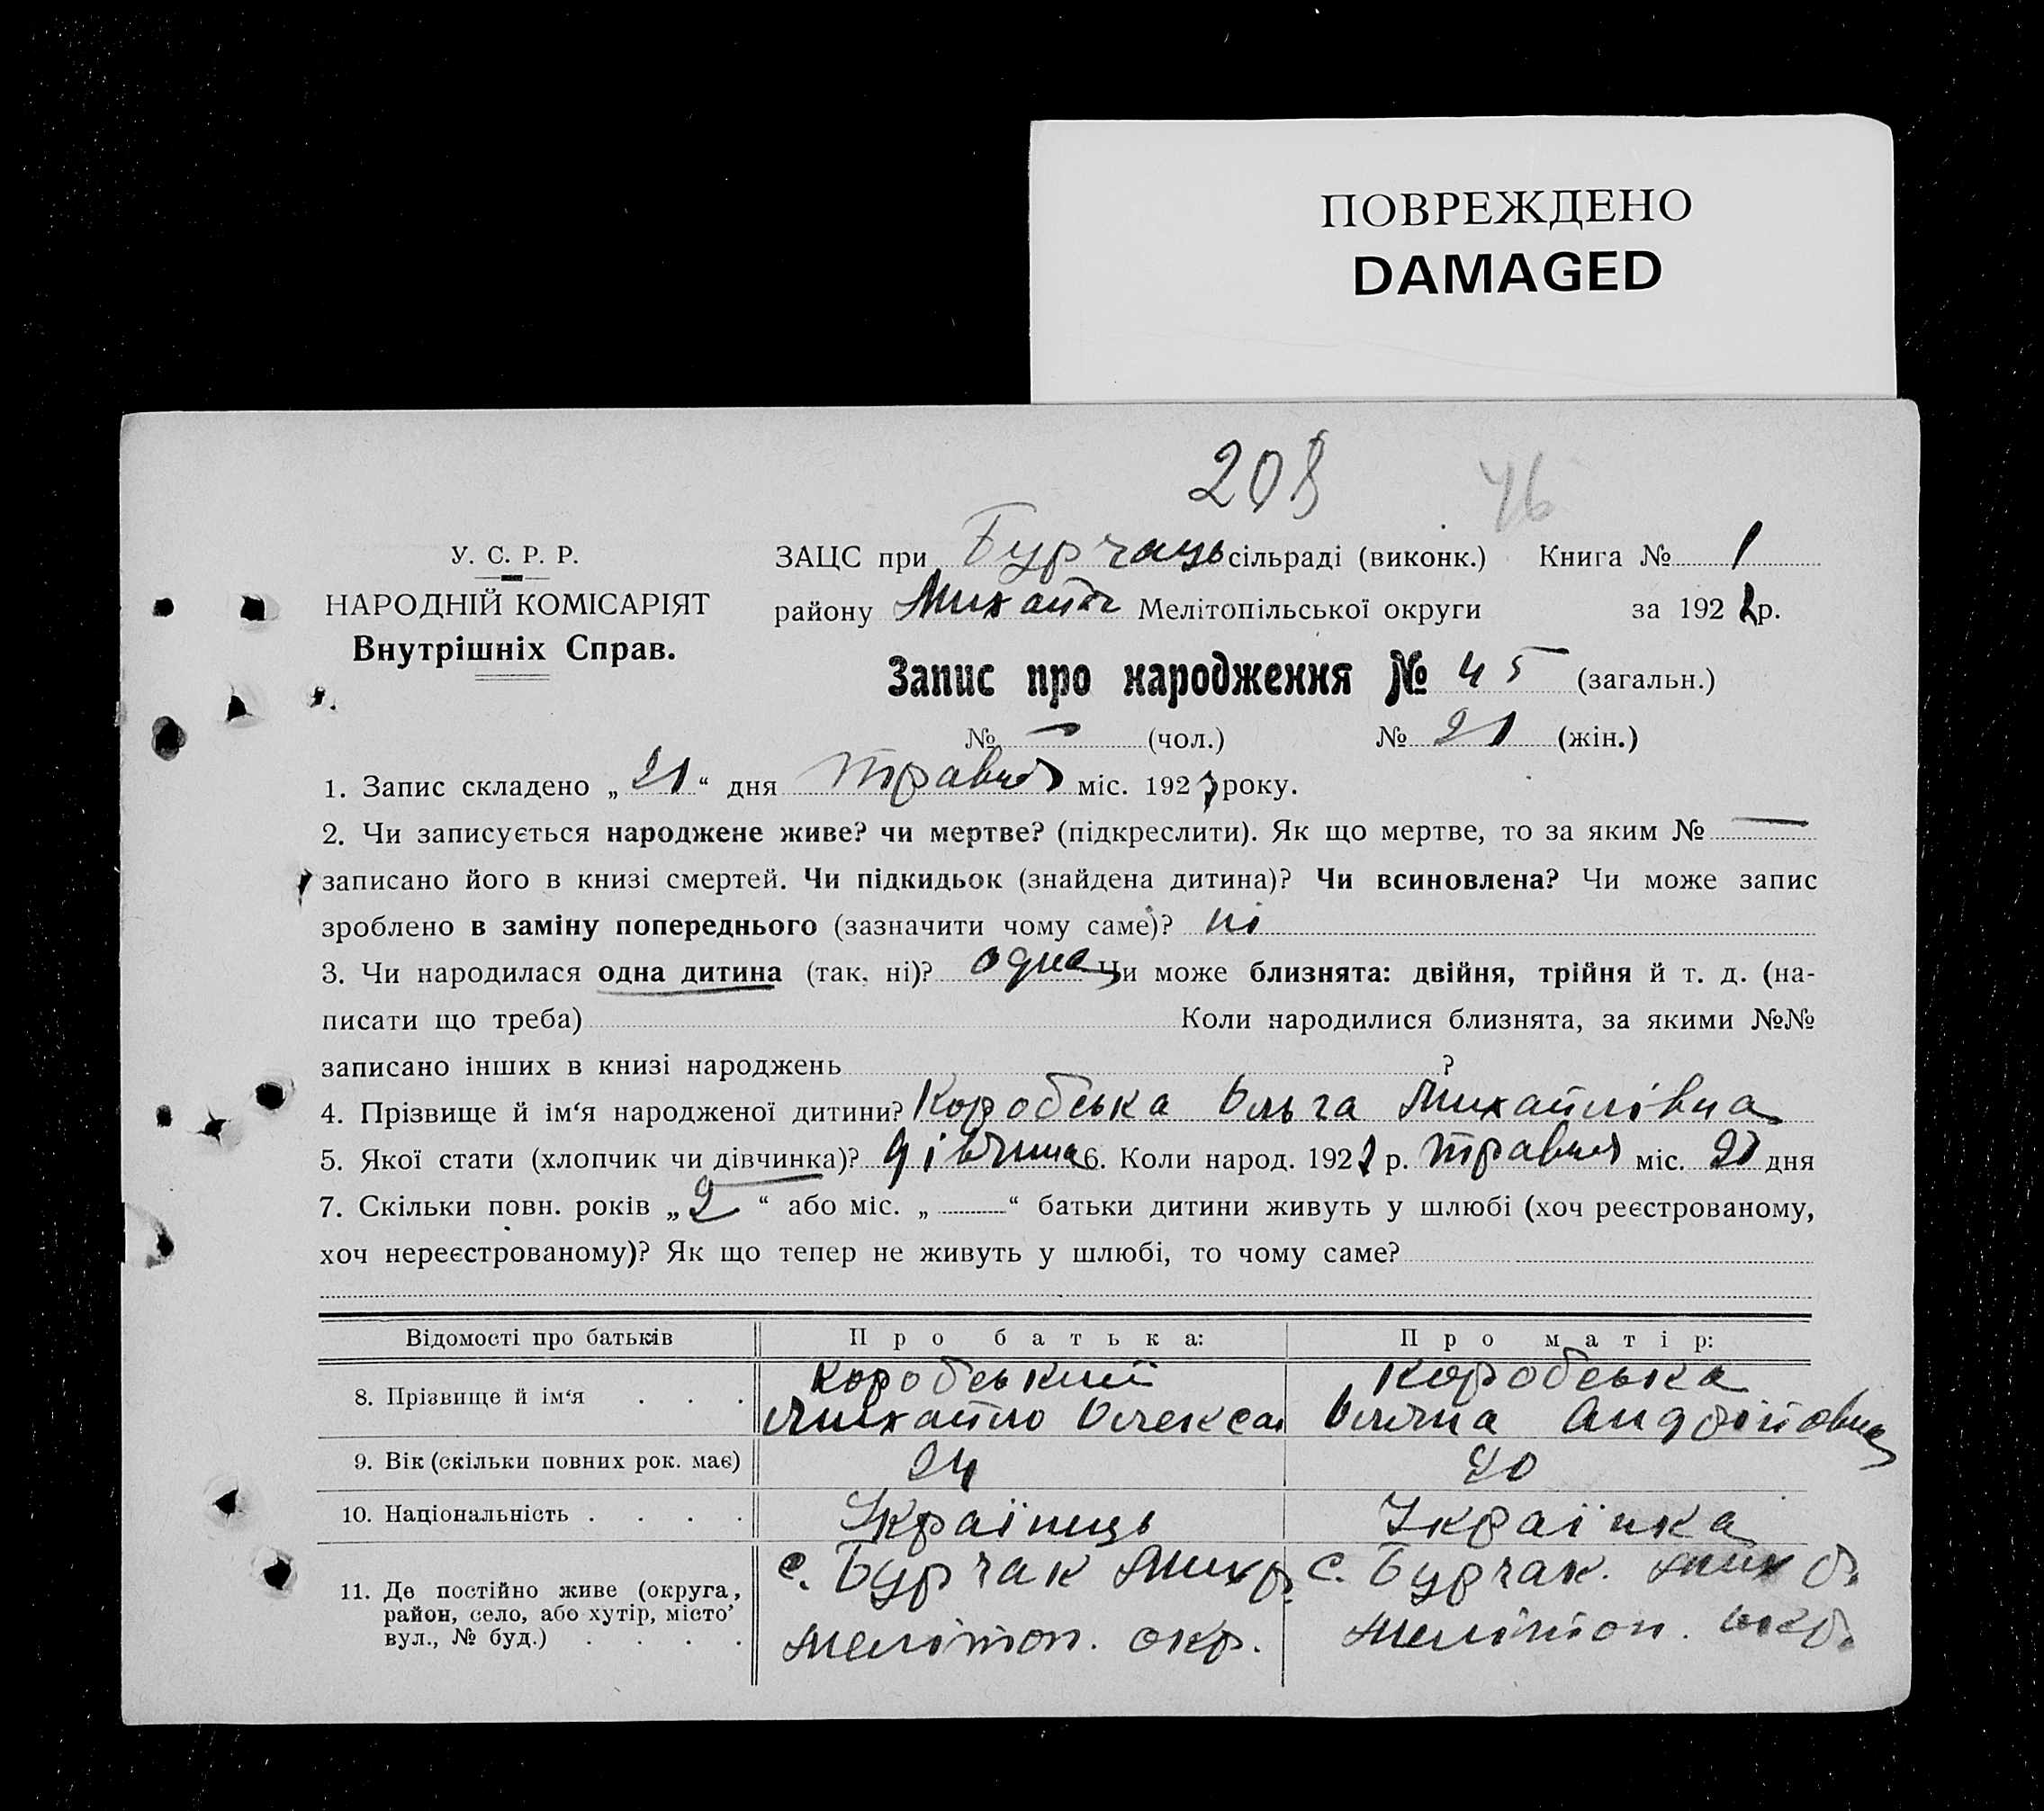 ПОВРЕЖДЕНО
DAMAGED
208 46
У. С. Р. Р.
НАРОДНІЙ КОМІСАРІЯТ
Внутрішніх Справ.
ЗАЦС при Бурчаць сільраді (виконк.) Книга № 1
району Михайл Мелітопільської округи за 192 р.
Запис про народження № 45 (загальн.)
№ — (чол.) № 21 (жін.)
1. Запис складено „ 21 “ дня травня міс. 192 року.
2. Чи записується народжене живе? чи мертве? (підкреслити). Як що мертве, то за яким № —
записано його в книзі смертей. Чи підкидьок (знайдена дитина)? Чи всиновлена? Чи може запис
зроблено в заміну попереднього (зазначити чому саме)? ні
3. Чи народилася одна дитина (так, ні)? одна Чи може близнята: двійня, трійня й т. д. (на-
писати що треба) Коли народилися близнята, за якими №№
записано інших в книзі народжень ?
4. Прізвище й ім‘я народженої дитини? Коробська Ольга Михайлівна
5. Якої стати (хлопчик чи дівчинка)? дівчина 6. Коли народ. 192 р. травня міс. дня
7. Скільки повн. років „ 2 “ або міс. „ — “ батьки дитини живуть у шлюбі (хоч реєстрованому,
хоч нереєстрованому)? Як що тепер не живуть у шлюбі, то чому саме?
Відомості про батьків
Про батька:
Про матір:
8. Прізвище й ім‘я . . .
Коробський
Михайло Олексан
Коробська
Андрійовна
9. Вік (скільки повних рок. має)
24
20
10. Національність . . . .
Українець
Українка
11. Де постійно живе (округа,
район, село, або хутір, місто’
вул., № буд.) . . . .
с. Бурчак Мих р.
Мелітоп. окр.
с. Бурчак. Мих р.
Мелітоп. окр.